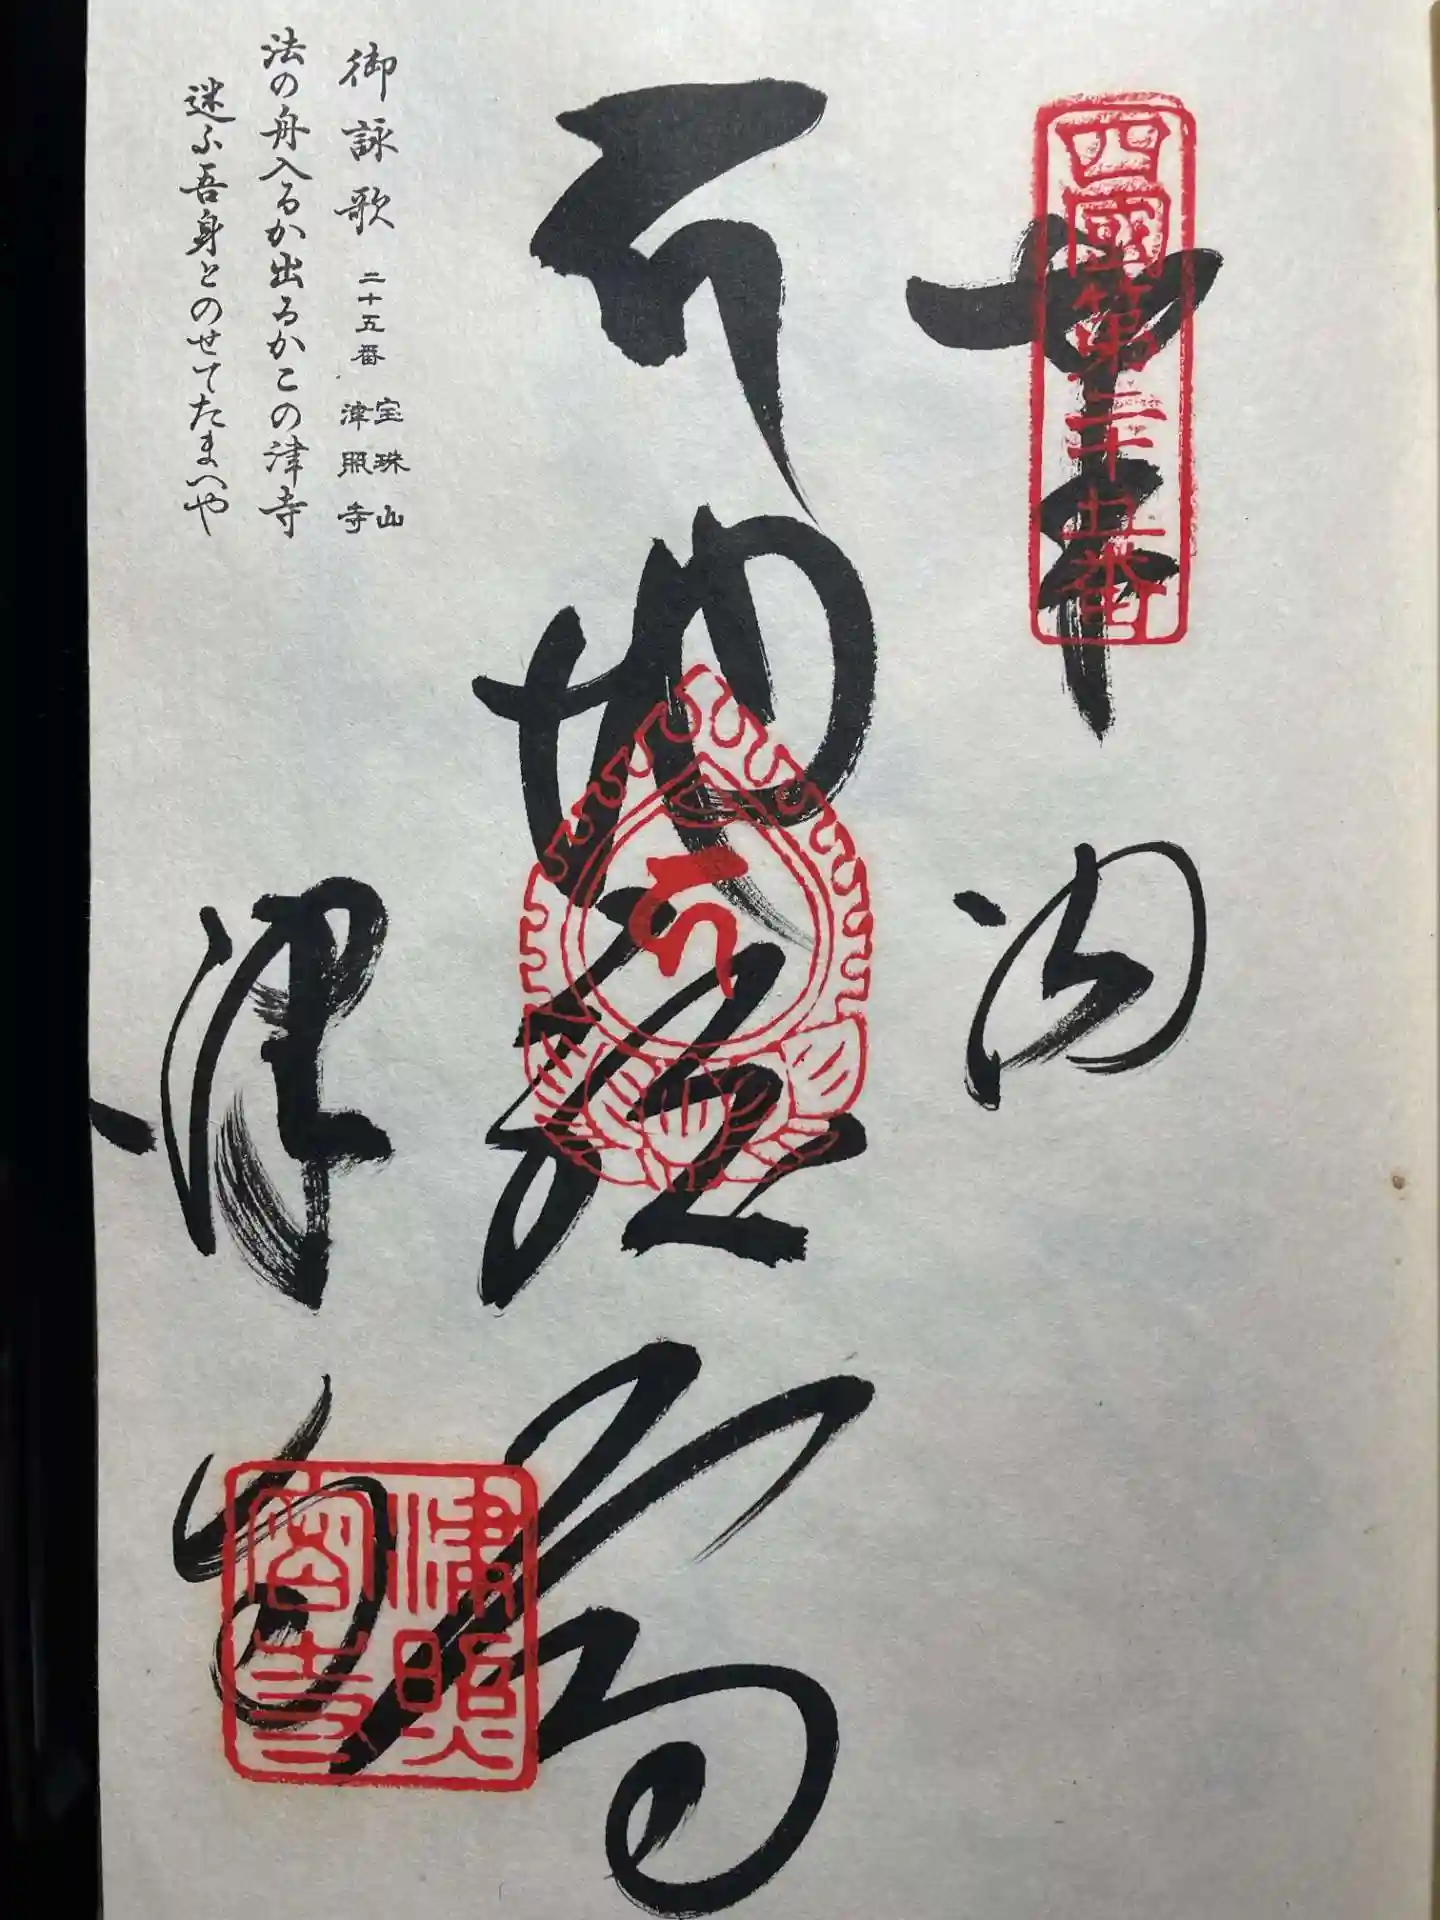 四國第二十五番
奉納
地蔵尊
津寺
津照
寺
御詠歌 二十五番 宝珠山
津照寺
法の舟入るか出るかこの津寺
迷ふ吾身とのせてたまへや